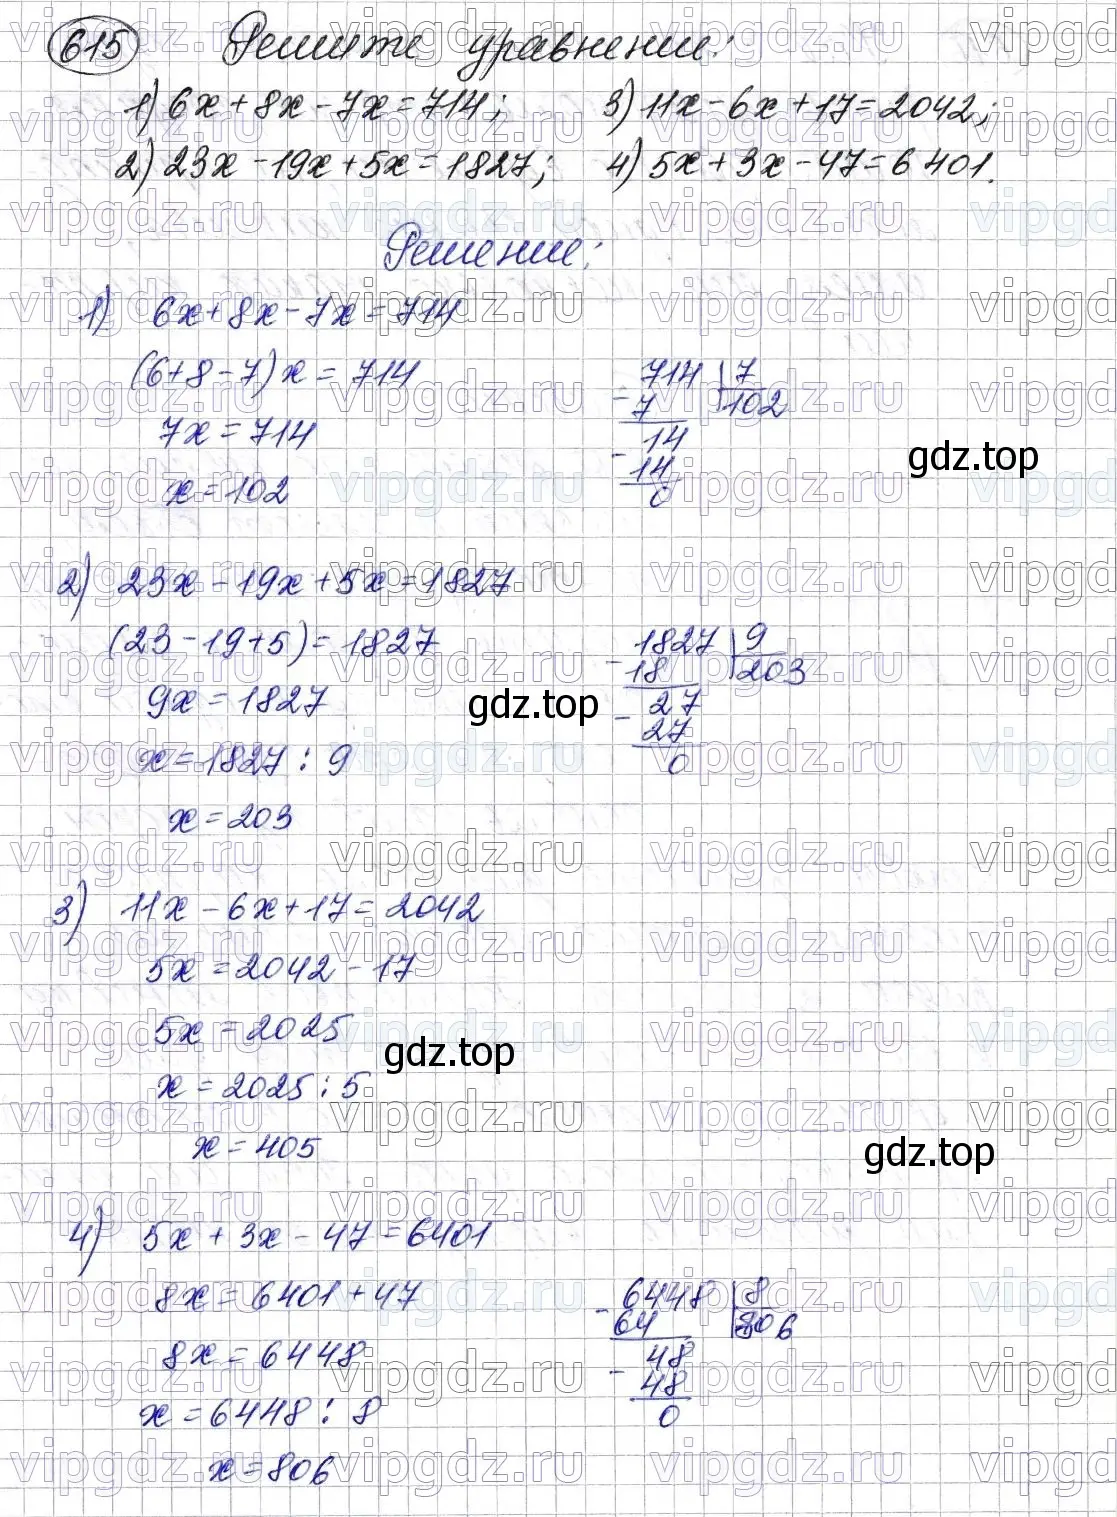 615 Решите уравнение:
1) 6x + 8x - 7x = 714; 3) 11x - 6x + 17 = 2042;
2) 23x - 19x + 5x = 1827; 4) 5x + 3x - 47 = 6401.
Решение:
1) 6x + 8x - 7x = 714
(6 + 8 - 7)x = 714
7x = 714
x = 102
714 | 7
- 7 | 102
14
- 14
0
gdz.top
2) 23x - 19x + 5x = 1827
(23 - 19 + 5) = 1827
9x = 1827
x = 1827 : 9
x = 203
1827 | 9
- 18 | 203
27
- 27
0
gdz.top
3) 11x - 6x + 17 = 2042
5x = 2042 - 17
5x = 2025
x = 2025 : 5
x = 405
gdz.top
gdz.top
4) 5x + 3x - 47 = 6401
8x = 6401 + 47
8x = 6448
x = 6448 : 8
x = 806
6448 | 8
- 64 | 806
48
- 48
0
vipgdz.ru